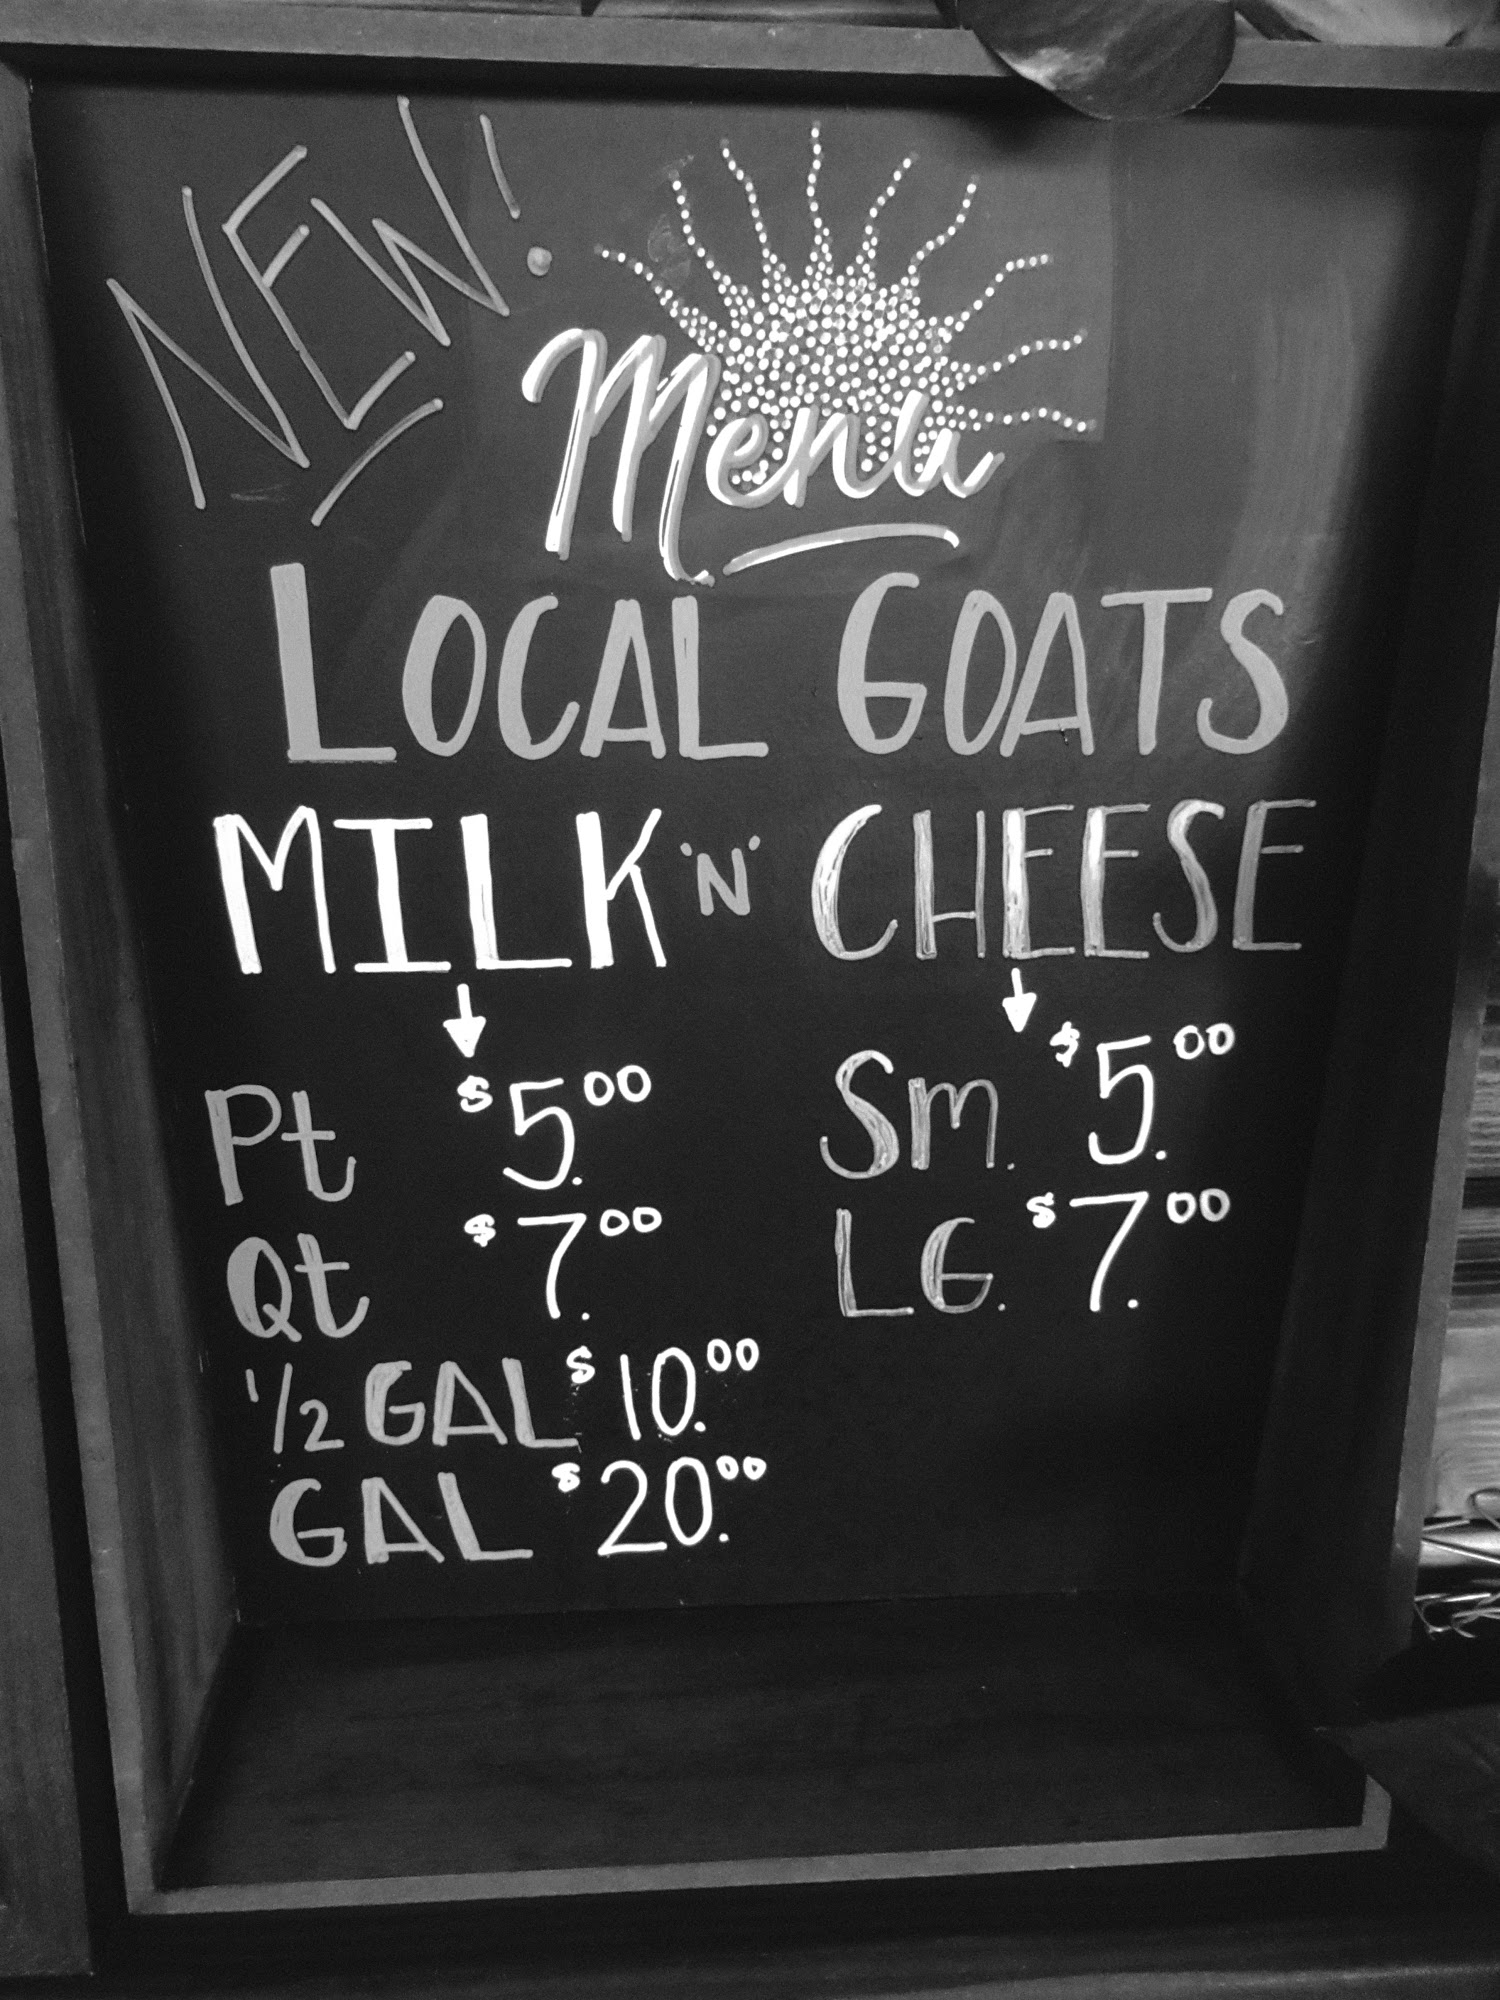 NEW!
Menu
LOCAL GOATS
MILK 'N' CHEESE
Pt $5.00
Qt $7.00
1/2 GAL $10.00
GAL $20.00
Sm. $5.00
LG. $7.00